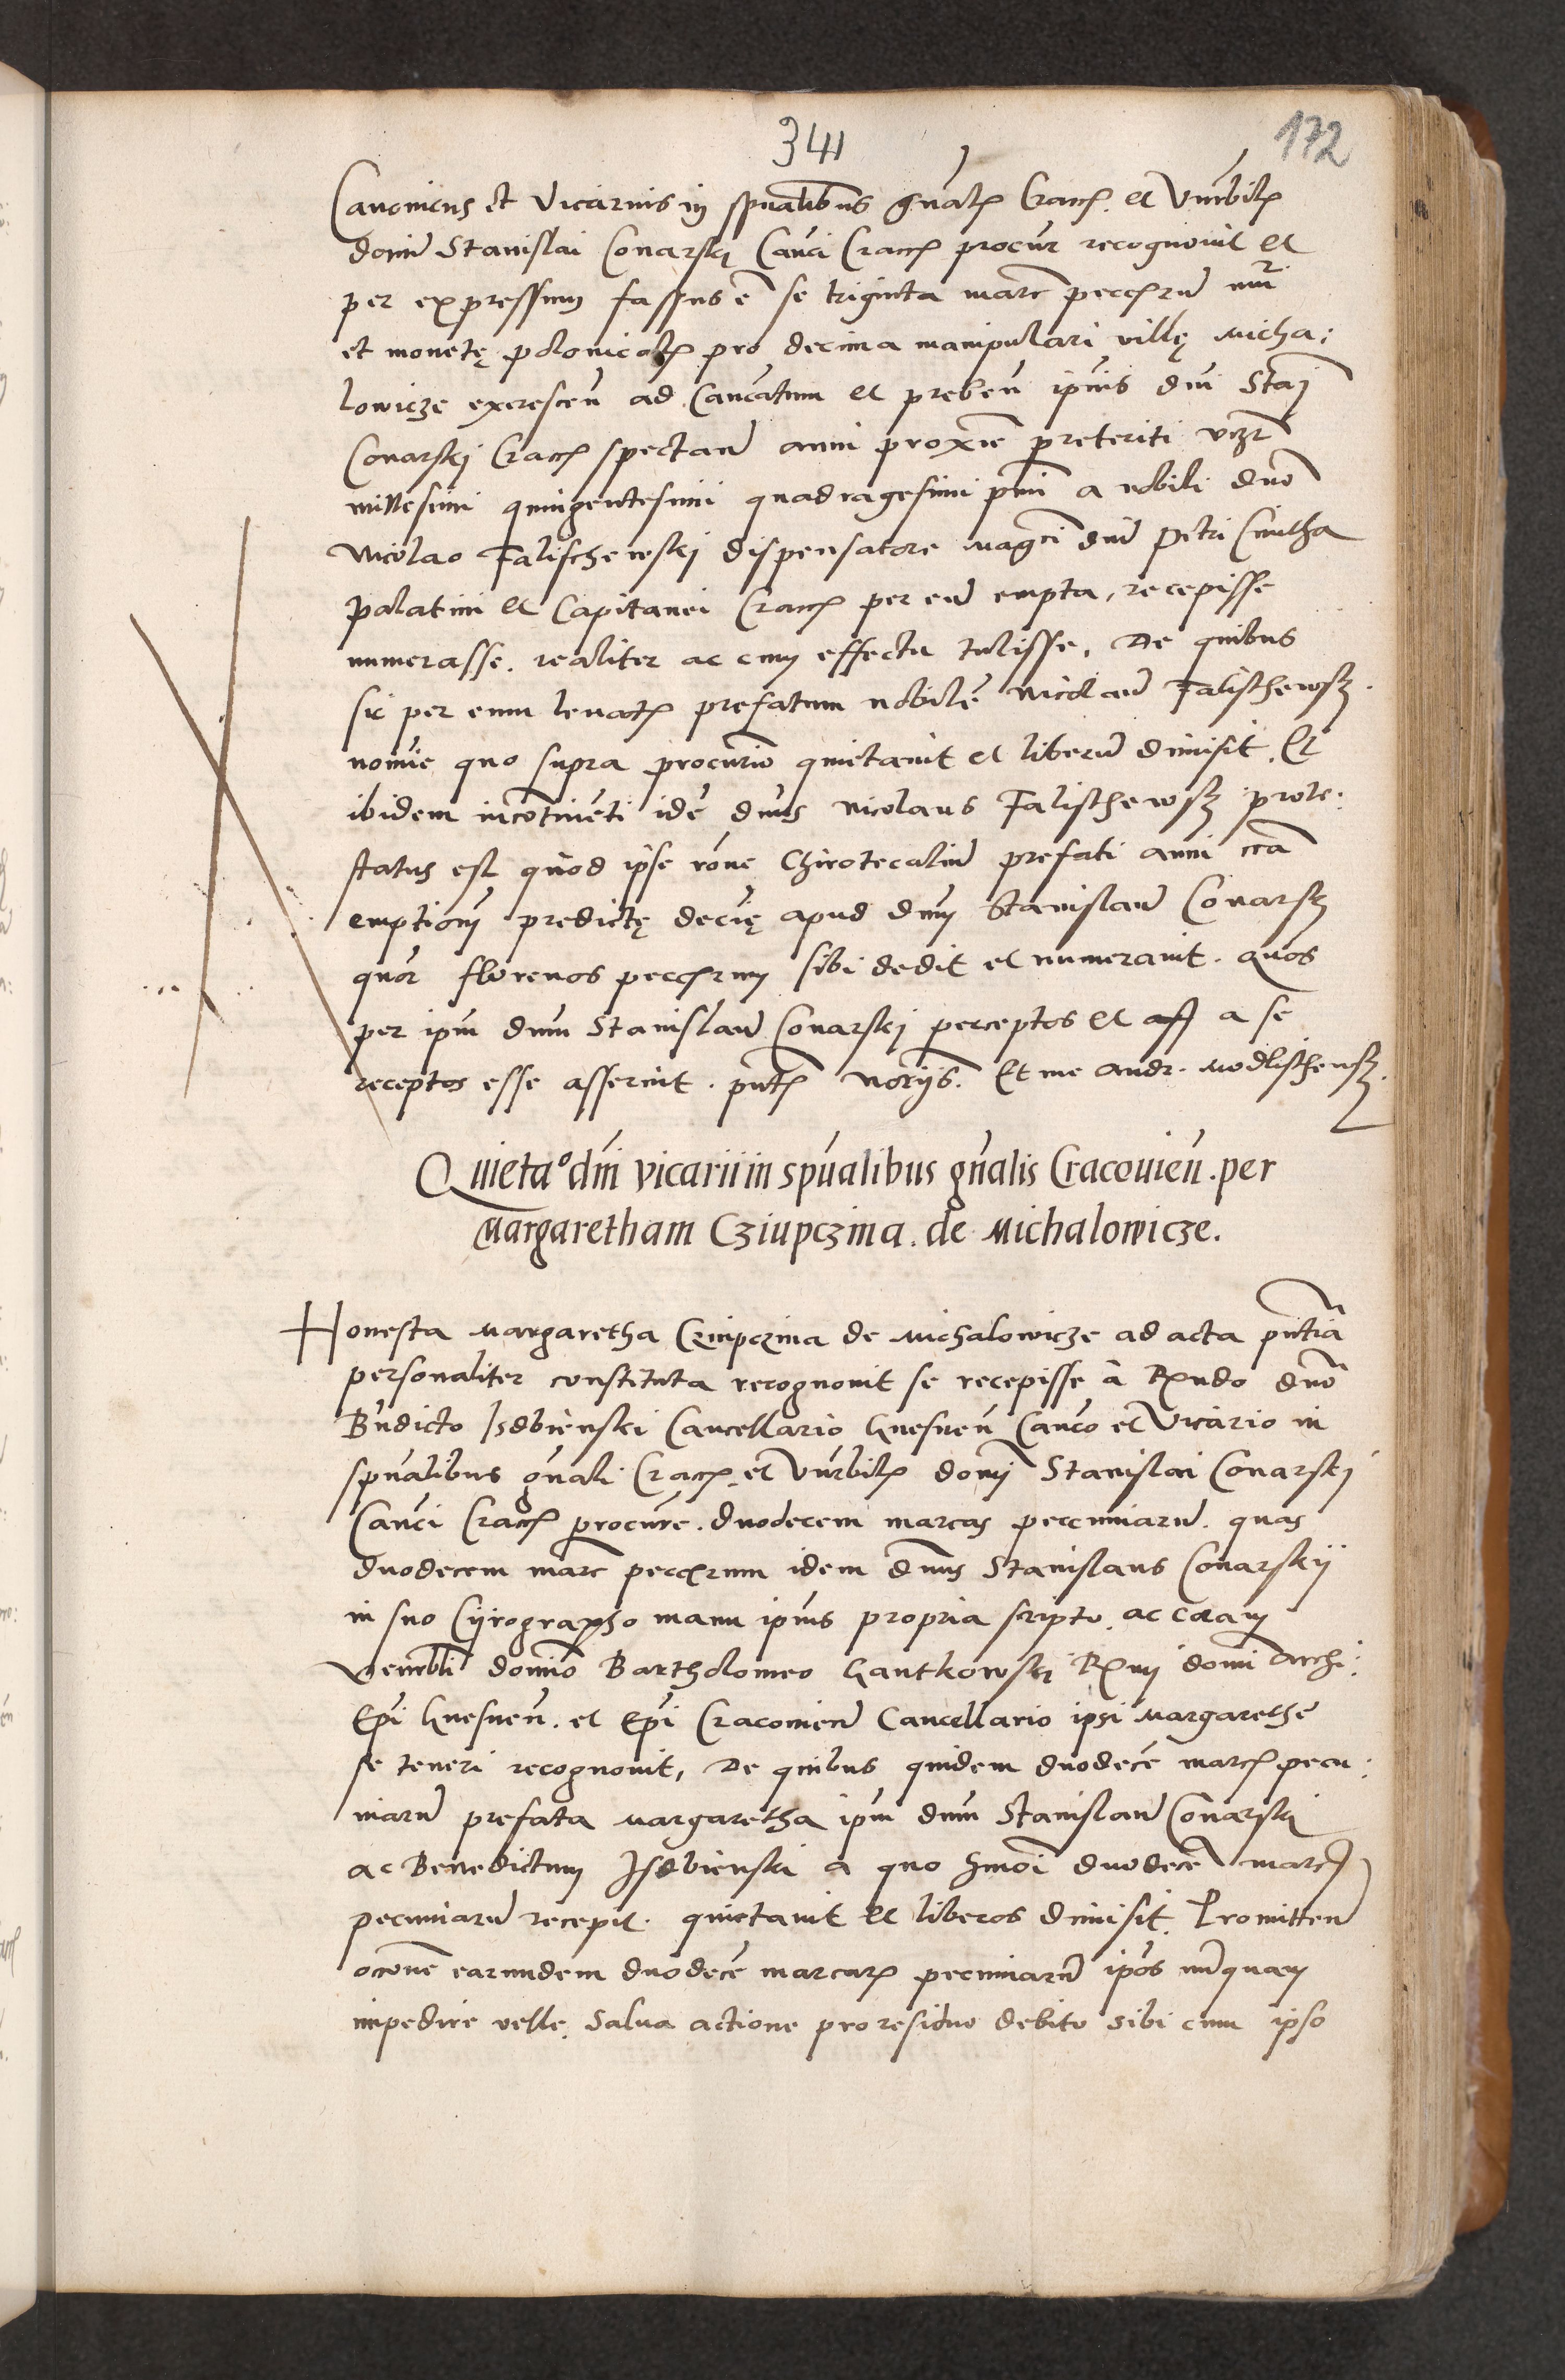 341
172
Canonicus et Vicarius in spualibus gnalis Cracs. et Vnrbilis
domi Stanislai Conarskj Canci Cracs procur recognouit et
per expressum fassus e se triginta marc peccharu nur
et monetę polonicalis pro decima manipulari villę Micha:
lowicze excrescen ad Cancatum et preben ipius dni Stai
Conarskj Cracs spectan anni proxie preteriti vizt
millesimi quingentesimi quadragesimi pmi a nobili dno
Nicolao Falischewskj dispensatore Magci dni Petri Cmitha
palatini et Capitanei Cracs per eu empta, recepisse
numerasse. realiter ac cum effectu tulisse. De quibus
sic per eum leuatis prefatum nobile Nicolau Falischewsk.
nomie quo supra procurio quietauit et liberu dimisit. Et
ibidem incontineti ide dnus Nicolaus Falischewsk prote:
status est quod ipse rone Chirotecaliu prefati anni cca
emptiom predictę decię apud dnum Stanislau Conarsk
quor florenos peccharum sibi dedit et numerauit. quos
per ipm dnum Stanislau Conarskj perceptos et a se
receptos esse asseruit. pntˀ Norijs. Et me Andr. Modlischewsk.
Quietaᵒ dni vicarii in spualibus gnalis Cracouien. per
Margaretham Cziupczina. de Michalowicze.
Honesta Margaretha Cziupczina de Michalowicze ad acta pntia
personaliter constituta recognouit se recepisse à Rndo dno
Bndicto Isdbienski Cancellario Gnesnen Canco et Vicario in
spualibus gnali Cracs. et Vnrbilis domi Stanislai Conarskj
Canci Cracs procure. duodecem marcas pecuniaru. quas
duodecem marc peccharum idem dnus Stanislaus Conarskij
in suo Cyrographo manu ipius propria scripto. ac coram
Venrbli domino Bartholomeo Gantkowskj Rmi domi Archi:
Epi Gnesnen. et Epi Cracouien Cancellario ipsi Margarethe
se teneri recognouit, De quibus quidem duodece marcs pecu:
niaru prefata Margaretha ipm dnum Stanislau Conarskj
ac Benedictum Isdbienski a quo hmoi duodece marcs
pecuniaru recepit. quietauit et liberos dimisit. Promitten
occone earundem duodece marcarˀ pecuniaru ipos nunquam
impedire velle. Salua actione pro residuo debito sibi cum ipso